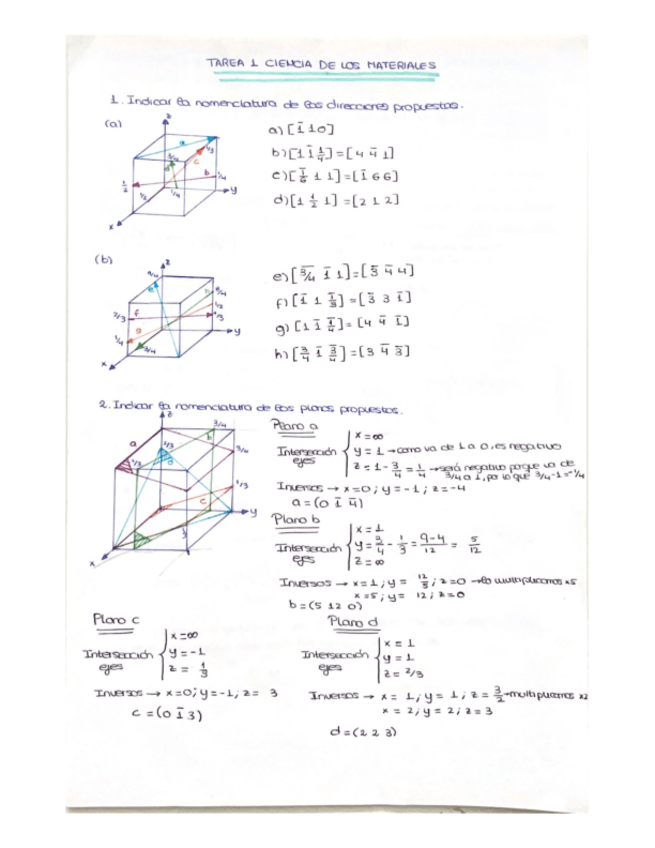 TAREA 1 CIENCIA DE LOS MATERIALES
1. Indicar la nomenclatura de las direcciones propuestas.
(a)
z
a
1/3
3/4
d
c
b
1/4
1/2
1/2
1/4
y
x
a) [1̄ 1 0]
b) [1 1̄ 1/4] = [4 4̄ 1]
c) [1̄/6 1 1] = [1̄ 6 6]
d) [1 1/2 1] = [2 1 2]
(b)
z
3/4
e
h
3/4
1/2
2/3
f
1/3
y
g
1/4
3/4
x
e) [3̄/4̄ 1̄ 1] = [3̄ 4̄ 4]
f) [1̄ 1 1̄/3] = [3̄ 3 1̄]
g) [1 1̄ 1̄/4] = [4 4̄ 1̄]
h) [3/4 1̄ 3̄/4] = [3 4̄ 3̄]
2. Indicar la nomenclatura de los planos propuestos.
z
3/4
a
b
1/3
3/4
1/3
d
1/3
c
y
x
Plano a
Intersección ejes
x = ∞
y = 1 → como va de 1 a 0, es negativo
z = 1 - 3/4 = 1/4 → será negativo porque va de
3/4 a 1, por lo que 3/4 - 1 = -1/4
Inversos → x = 0 ; y = -1 ; z = -4
a = (0 1̄ 4̄)
Plano b
Intersección ejes
x = 1
y = 3/4 - 1/3 = 9-4/12 = 5/12
z = ∞
Inversos → x = 1 ; y = 12/5 ; z = 0 → lo multiplicamos x5
x = 5 ; y = 12 ; z = 0
b = (5 12 0)
Plano c
Intersección ejes
x = ∞
y = -1
z = 1/3
Inversos → x = 0 ; y = -1 ; z = 3
c = (0 1̄ 3)
Plano d
Intersección ejes
x = 1
y = 1
z = 2/3
Inversos → x = 1 ; y = 1 ; z = 3/2 → multiplicamos x2
x = 2 ; y = 2 ; z = 3
d = (2 2 3)